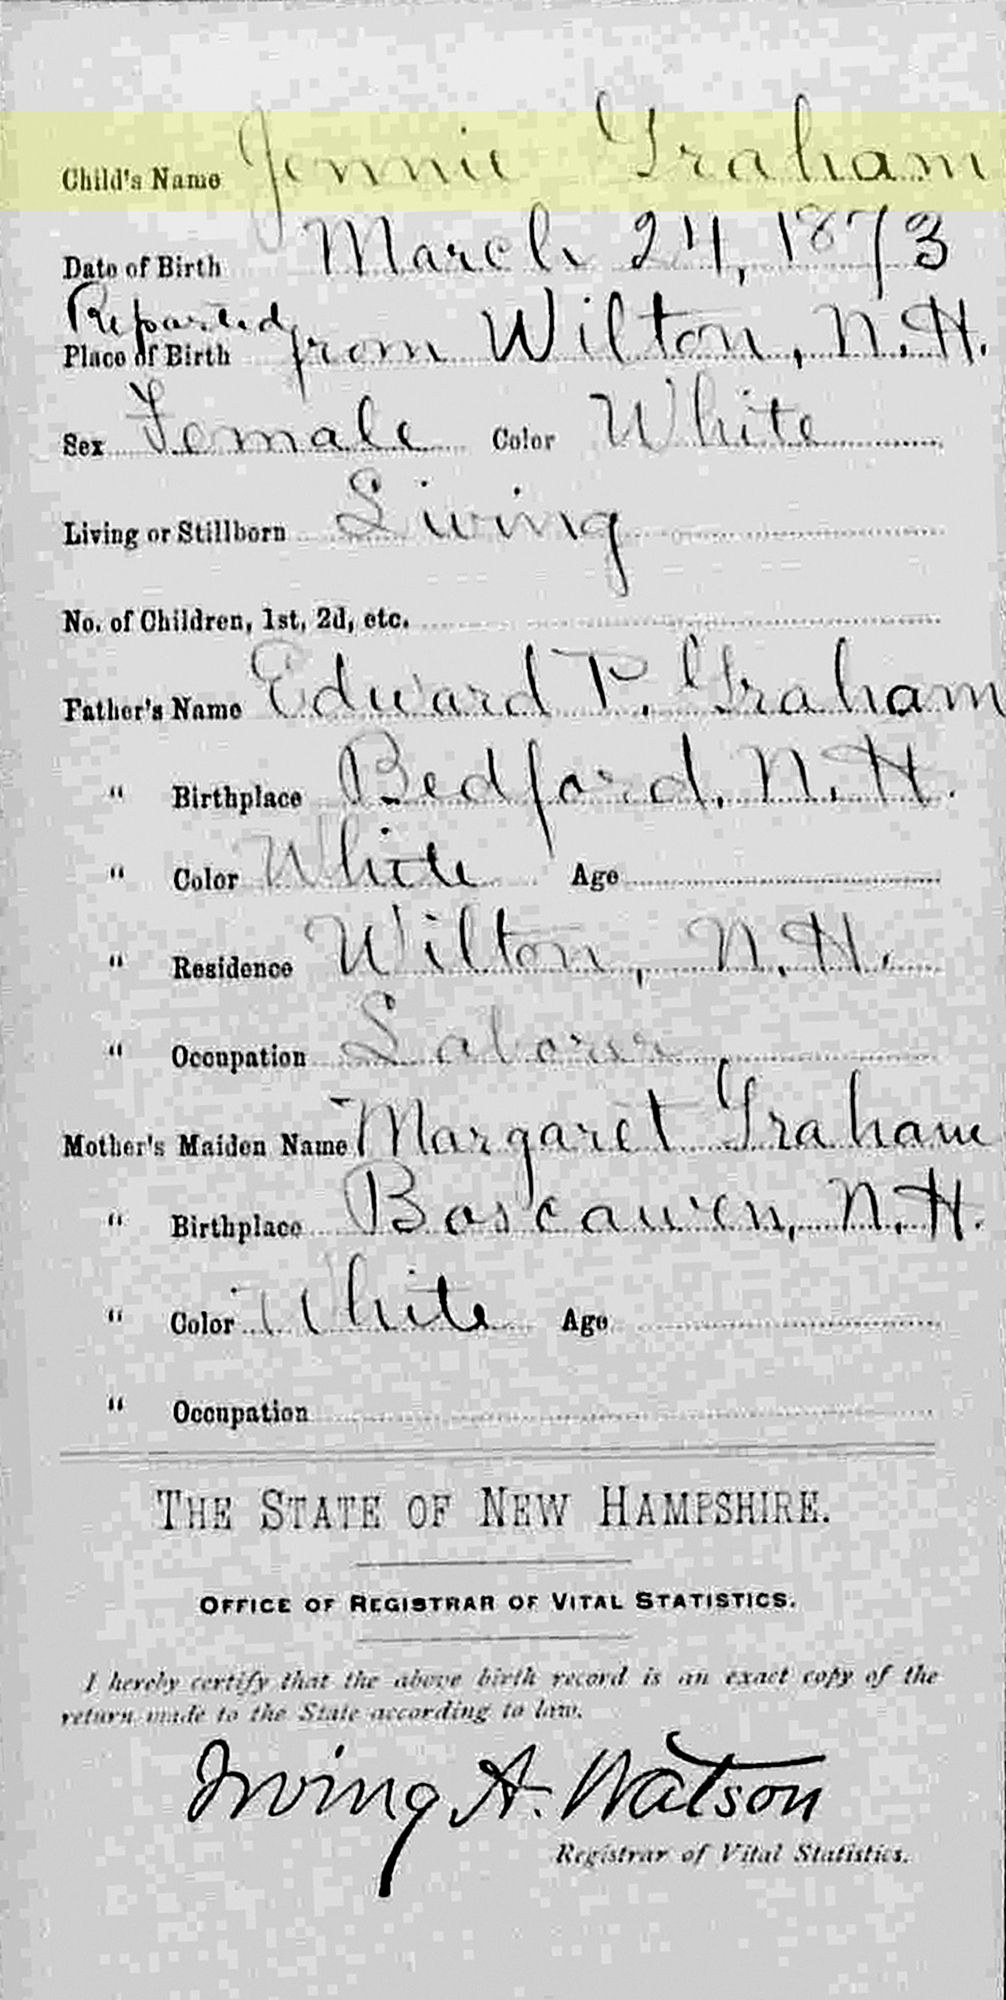 Child's Name Jennie Graham
Date of Birth March 24, 1873
Reported
Place of Birth from Wilton, N.H.
Sex Female Color White
Living or Stillborn Living
No. of Children, 1st, 2d, etc.
Father's Name Edward P. Graham
" Birthplace Bedford, N.H.
" Color White Age
" Residence Wilton, N.H.
" Occupation Laborer
Mother's Maiden Name Margaret Graham
" Birthplace Boscawen, N.H.
" Color White Age
" Occupation
THE STATE OF NEW HAMPSHIRE.
OFFICE OF REGISTRAR OF VITAL STATISTICS.
I hereby certify that the above birth record is an exact copy of the
return made to the State according to law.
Irving A. Watson
Registrar of Vital Statistics.